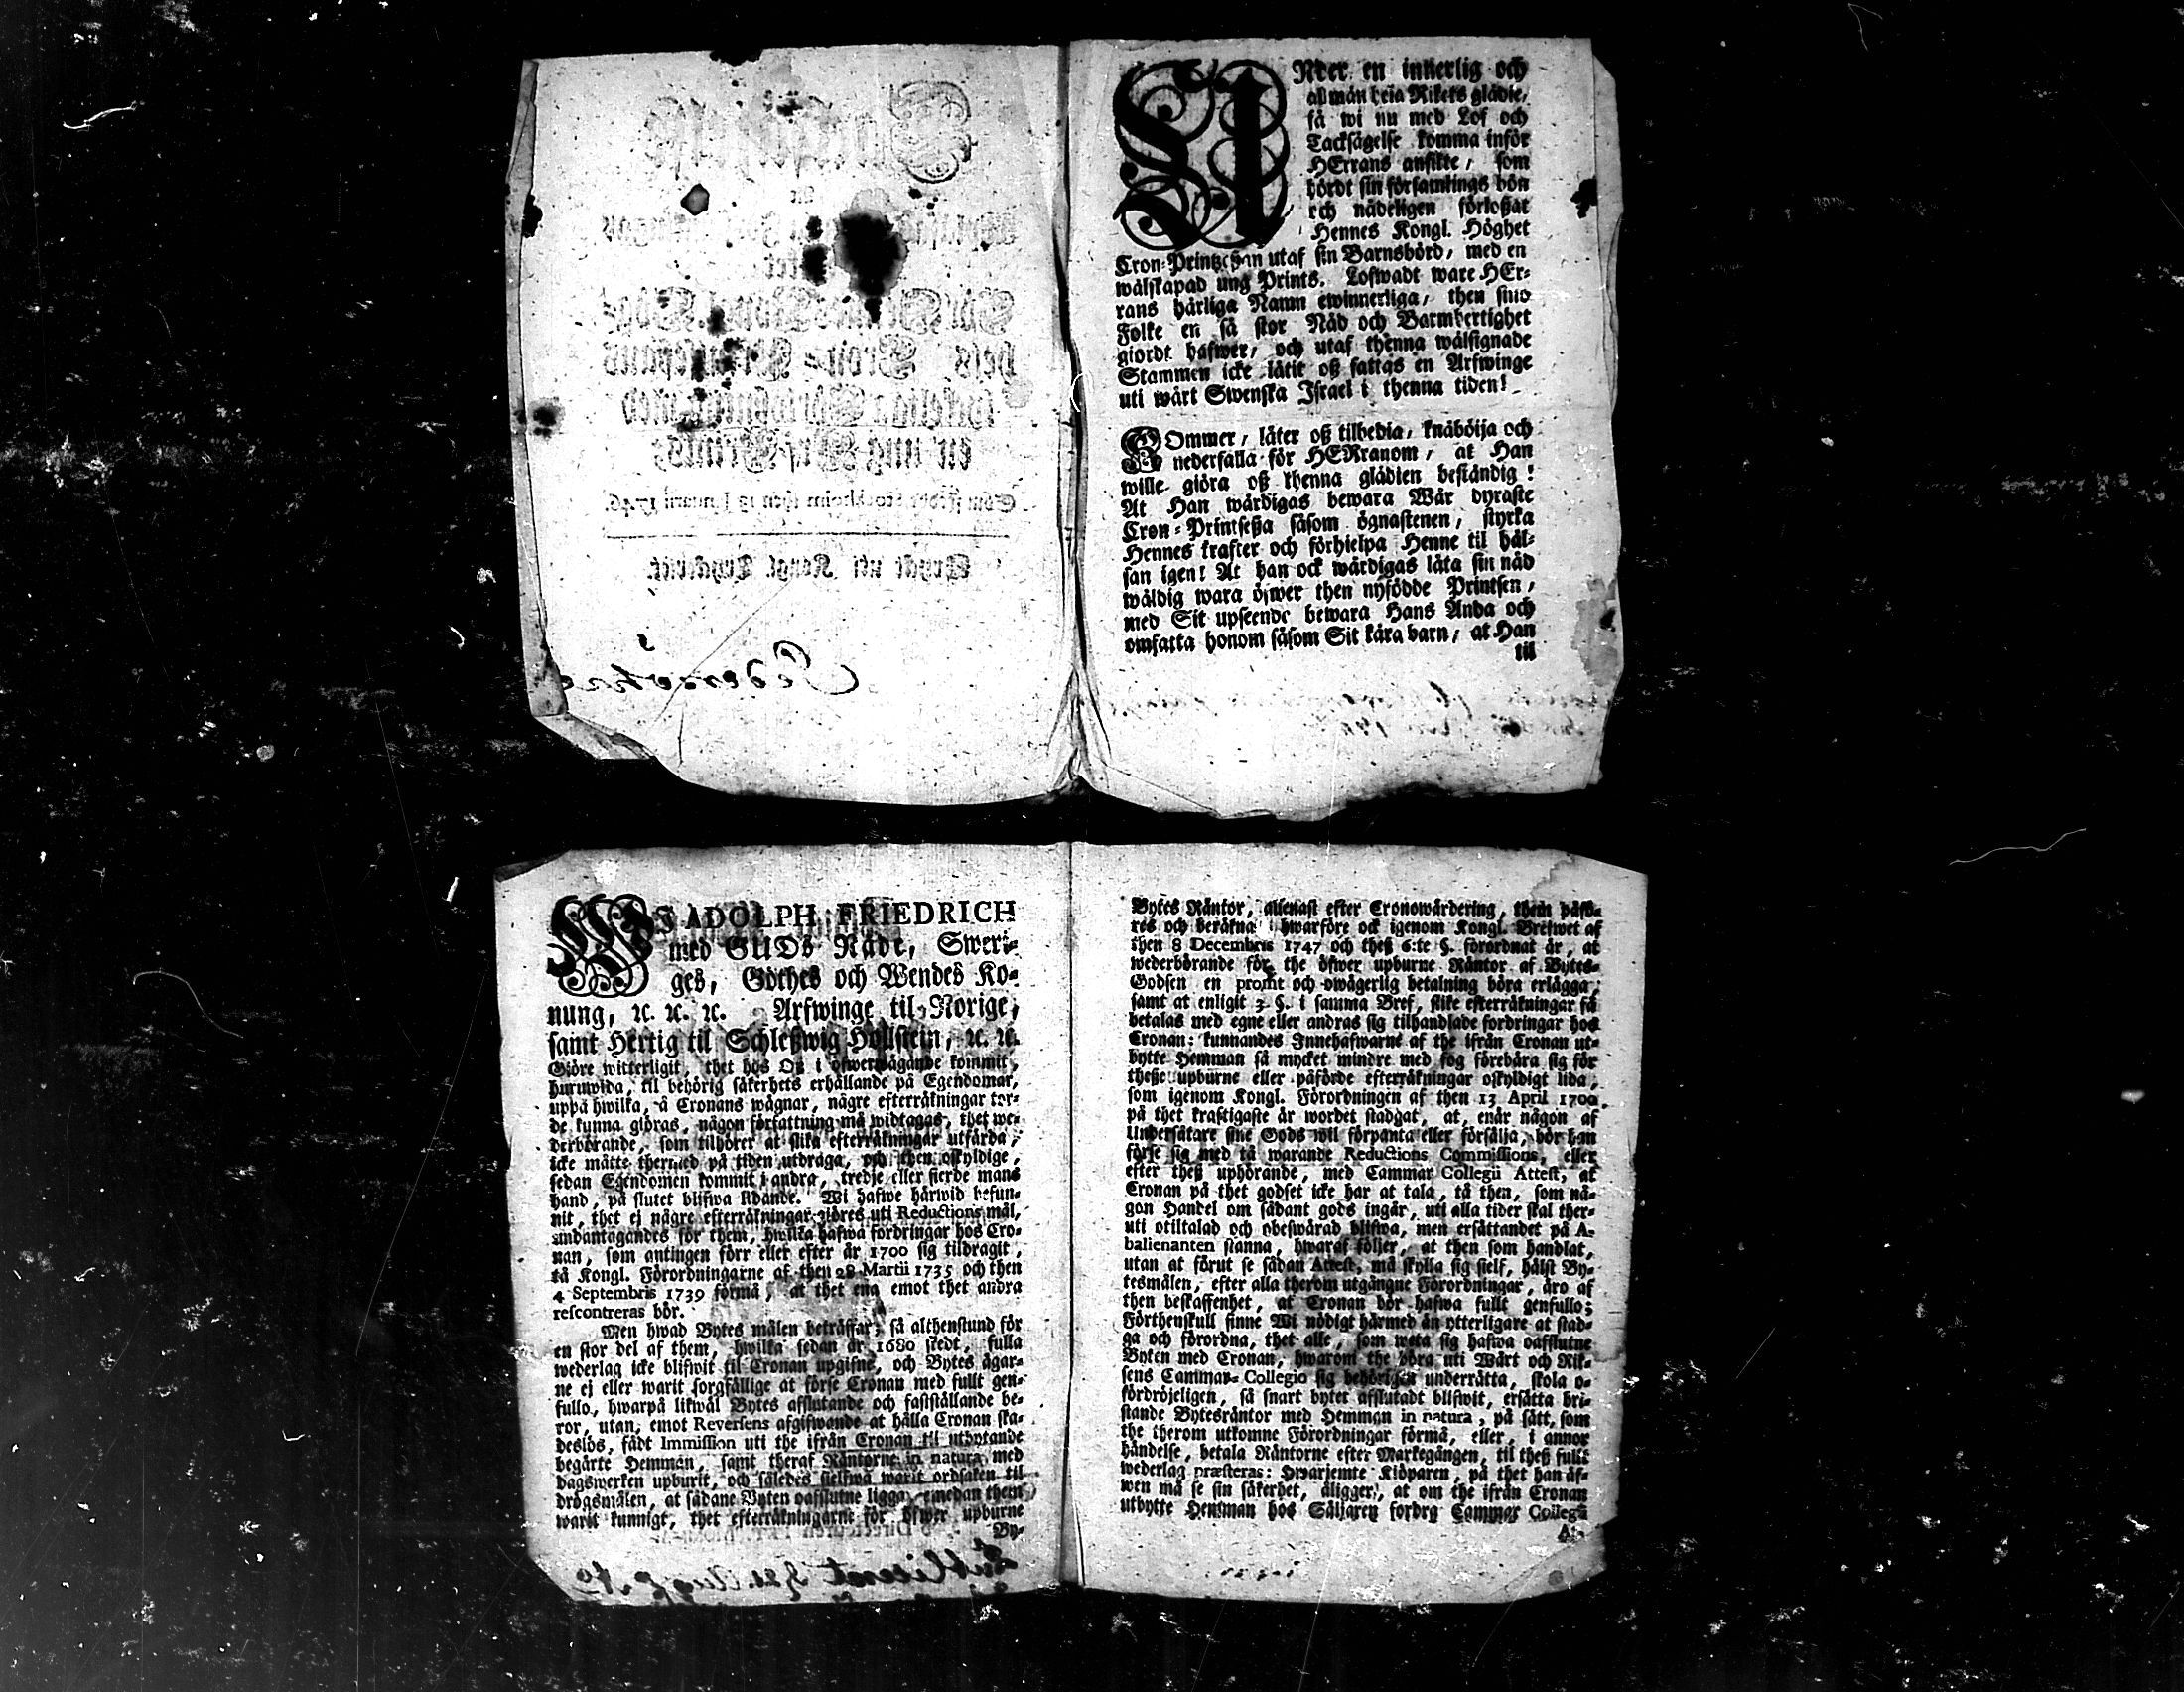 UNder en innerlig och
allmän hela Rikets glädie,
få wi nu med Lof och
Tacksägelse komma inför
HErrans ansikte, som
hördt sin församlings bön
och nådeligen förloßat
Hennes Kongl. Höghet
Cron-Printzeßan utaf sin Barnsbörd, med en
wälskapad ung Prints. Lofwadt ware HEr-
rans härliga Namn ewinnerliga, then sino
Folke en så stor Nåd och Barmhertighet
giordt hafwer, och utaf thenna wälsignade
Stammen icke låtit oß fattas en Arfwinge
uti wårt Swenska Israel i thenna tiden!
KOmmer, låter oß tilbedia, knäböija och
nederfalla för HERranom, at Han
wille giöra oß thenna glädien beständig!
At Han wärdigas bewara Wår dyraste
Cron-Printseßa såsom ögnastenen, styrka
Hennes krafter och förhielpa Henne til häl-
san igen! At han ock wärdigas låta sin nåd
wäldig wara öfwer then nyfödde Printsen,
med Sit upseende bewara Hans Anda och
omfatta honom såsom Sit kära barn, at Han
til
WJ ADOLPH FRIEDRICH
med GUDs Nåde, Sweri-
ges, Göthes och Wendes Ko-
nung, ꝛc. ꝛc. ꝛc. Arfwinge til Norige,
samt Hertig til Schleßwig Hollstein, ꝛc. ꝛc.
Giöre witterligit, thet hos Oß i öfwerwägande kommit,
huruwida, til behörig säkerhets erhållande på Egendomar,
uppå hwilka, å Cronans wägnar, någre efterräkningar tor-
de kunna giöras, någon författning må widtagas, thet we-
derbörande, som tilhörer at slika efterräkningar utfärda,
icke måtte thermed på tiden utdraga, och then oskyldige,
sedan Egendomen kommit i andra, tredje eller fierde mans
hand, på slutet blifwa lidande. Wi hafwe härwid befun-
nit, thet ej någre efterräkningar giöres uti Reductions mål,
undantagandes för them, hwilka hafwa fordringar hos Cro-
nan, som antingen förr eller efter år 1700 sig tildragit,
tå Kongl. Förordningarne af then 28 Martii 1735 och then
4 Septembris 1739 förmå, at thet ena emot thet andra
rescontreras bör.
Men hwad Bytes målen beträffar, så althenstund för
en stor del af them, hwilka sedan år 1680 skedt, fulla
wederlag icke blifwit til Cronan upgifne, och Bytes ägar-
ne ej eller warit sorgfällige at förse Cronan med fullt gen-
fullo, hwarpå likwäl Bytes afslutande och fastställande be-
ror, utan, emot Reversens afgifwande at hålla Cronan ska-
deslös, fådt Immission uti the ifrån Cronan til utbytande
begärte Hemman, samt theraf Räntorne in natura med
dagswerken upburit, och således sielfwa warit ordsaken til
drögsmålen, at sådane Byten oafslutne ligga, emedan them
warit kunnigt, thet efterräkningarne för öfwer upburne
By-
Bytes Räntor, allenast efter Cronowärdering, them påfö-
res och beräknas hwarföre ock igenom Kongl. Brefwet af
then 8 Decembris 1747 och theß 6:te §. förordnat är, at
wederbörande för the öfwer upburne Räntor af Bytes-
Godsen en promt och owägerlig betalning böra erlägga,
samt at enligit 3 §. i samma Bref, slike efterräkningar få
betalas med egne eller andras sig tilhandlade fordringar hos
Cronan: kunnandes Innehafwarne af the ifrån Cronan ut-
bytte Hemman så mycket mindre med fog förebära sig för
theße upburne eller påförde efterräkningar oskyldigt lida,
som igenom Kongl. Förordningen af then 13 April 1700.
på thet kraftigaste är wordet stadgat, at, enär någon af
Undersåtare sine Gods wil förpanta eller försälja, bör han
förse sig med tå warande Reductions Commissions, eller
efter theß uphörande, med Cammar Collegii Attest, at
Cronan på thet godset icke har at tala, tå then, som nå-
gon Handel om sådant gods ingår, uti alla tider skal ther-
uti otiltalad och obeswärad blifwa, men ersättandet på A-
balienanten stanna, hwaraf följer, at then som handlat,
utan at förut se sådan Attest, må skylla sig sielf, hälst By-
tesmålen, efter alla therom utgångne Förordningar, äro af
then beskaffenhet, at Cronan bör hafwa fullt genfullo;
Förthenskull finne Wi nödigt härmed än ytterligare at stad-
ga och förordna, thet alle, som weta sig hafwa oafslutne
Byten med Cronan, hwarom the böra uti Wårt och Rik-
sens Cammar-Collegio sig behörigen underrätta, skola o-
fördröjeligen, så snart bytet afslutadt blifwit, ersätta bri-
stande Bytesräntor med Hemman in natura, på sätt, som
the therom utkomne Förordningar förmå, eller, i annor
händelse, betala Räntorne efter Markegången, til theß fullt
wederlag præsteras: Hwarjemte Kiöparen, på thet han äf-
wen må se sin säkerhet, åligger, at om the ifrån Cronan
utbytte Hemman hos Säljaren fordra Cammar Collegii
At-